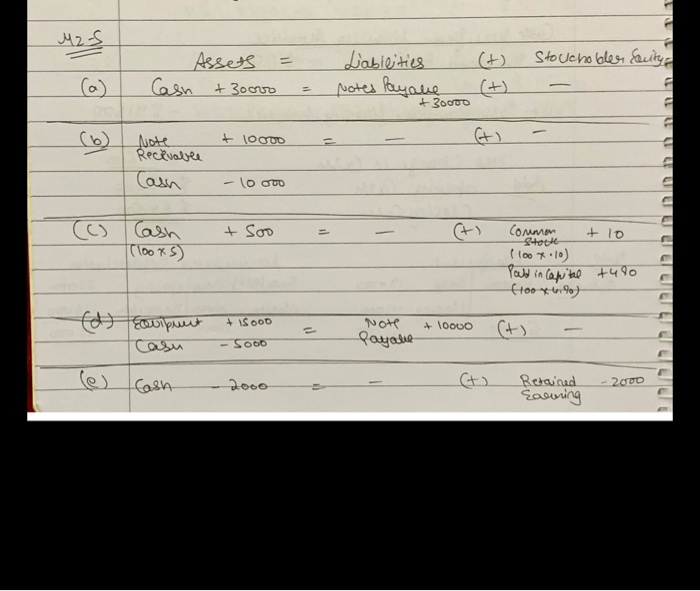 M2-5
Assets = Liableities (+) Stockholder Equity
(a) Cash + 30000 = Notes Payable (+) —
+ 30000
(b) Note + 10000 = — (+) —
Receivable
Cash - 10 000
(c) Cash + 500 = — (+) Common + 10
(100 x 5) Stock
(100 x .10)
Paid in Capital + 490
(100 x 4.90)
(d) Equipment + 15000 = Note + 10000 (+) —
Cash - 5000 Payable
(e) Cash - 2000 = — (+) Retained - 2000
Earning